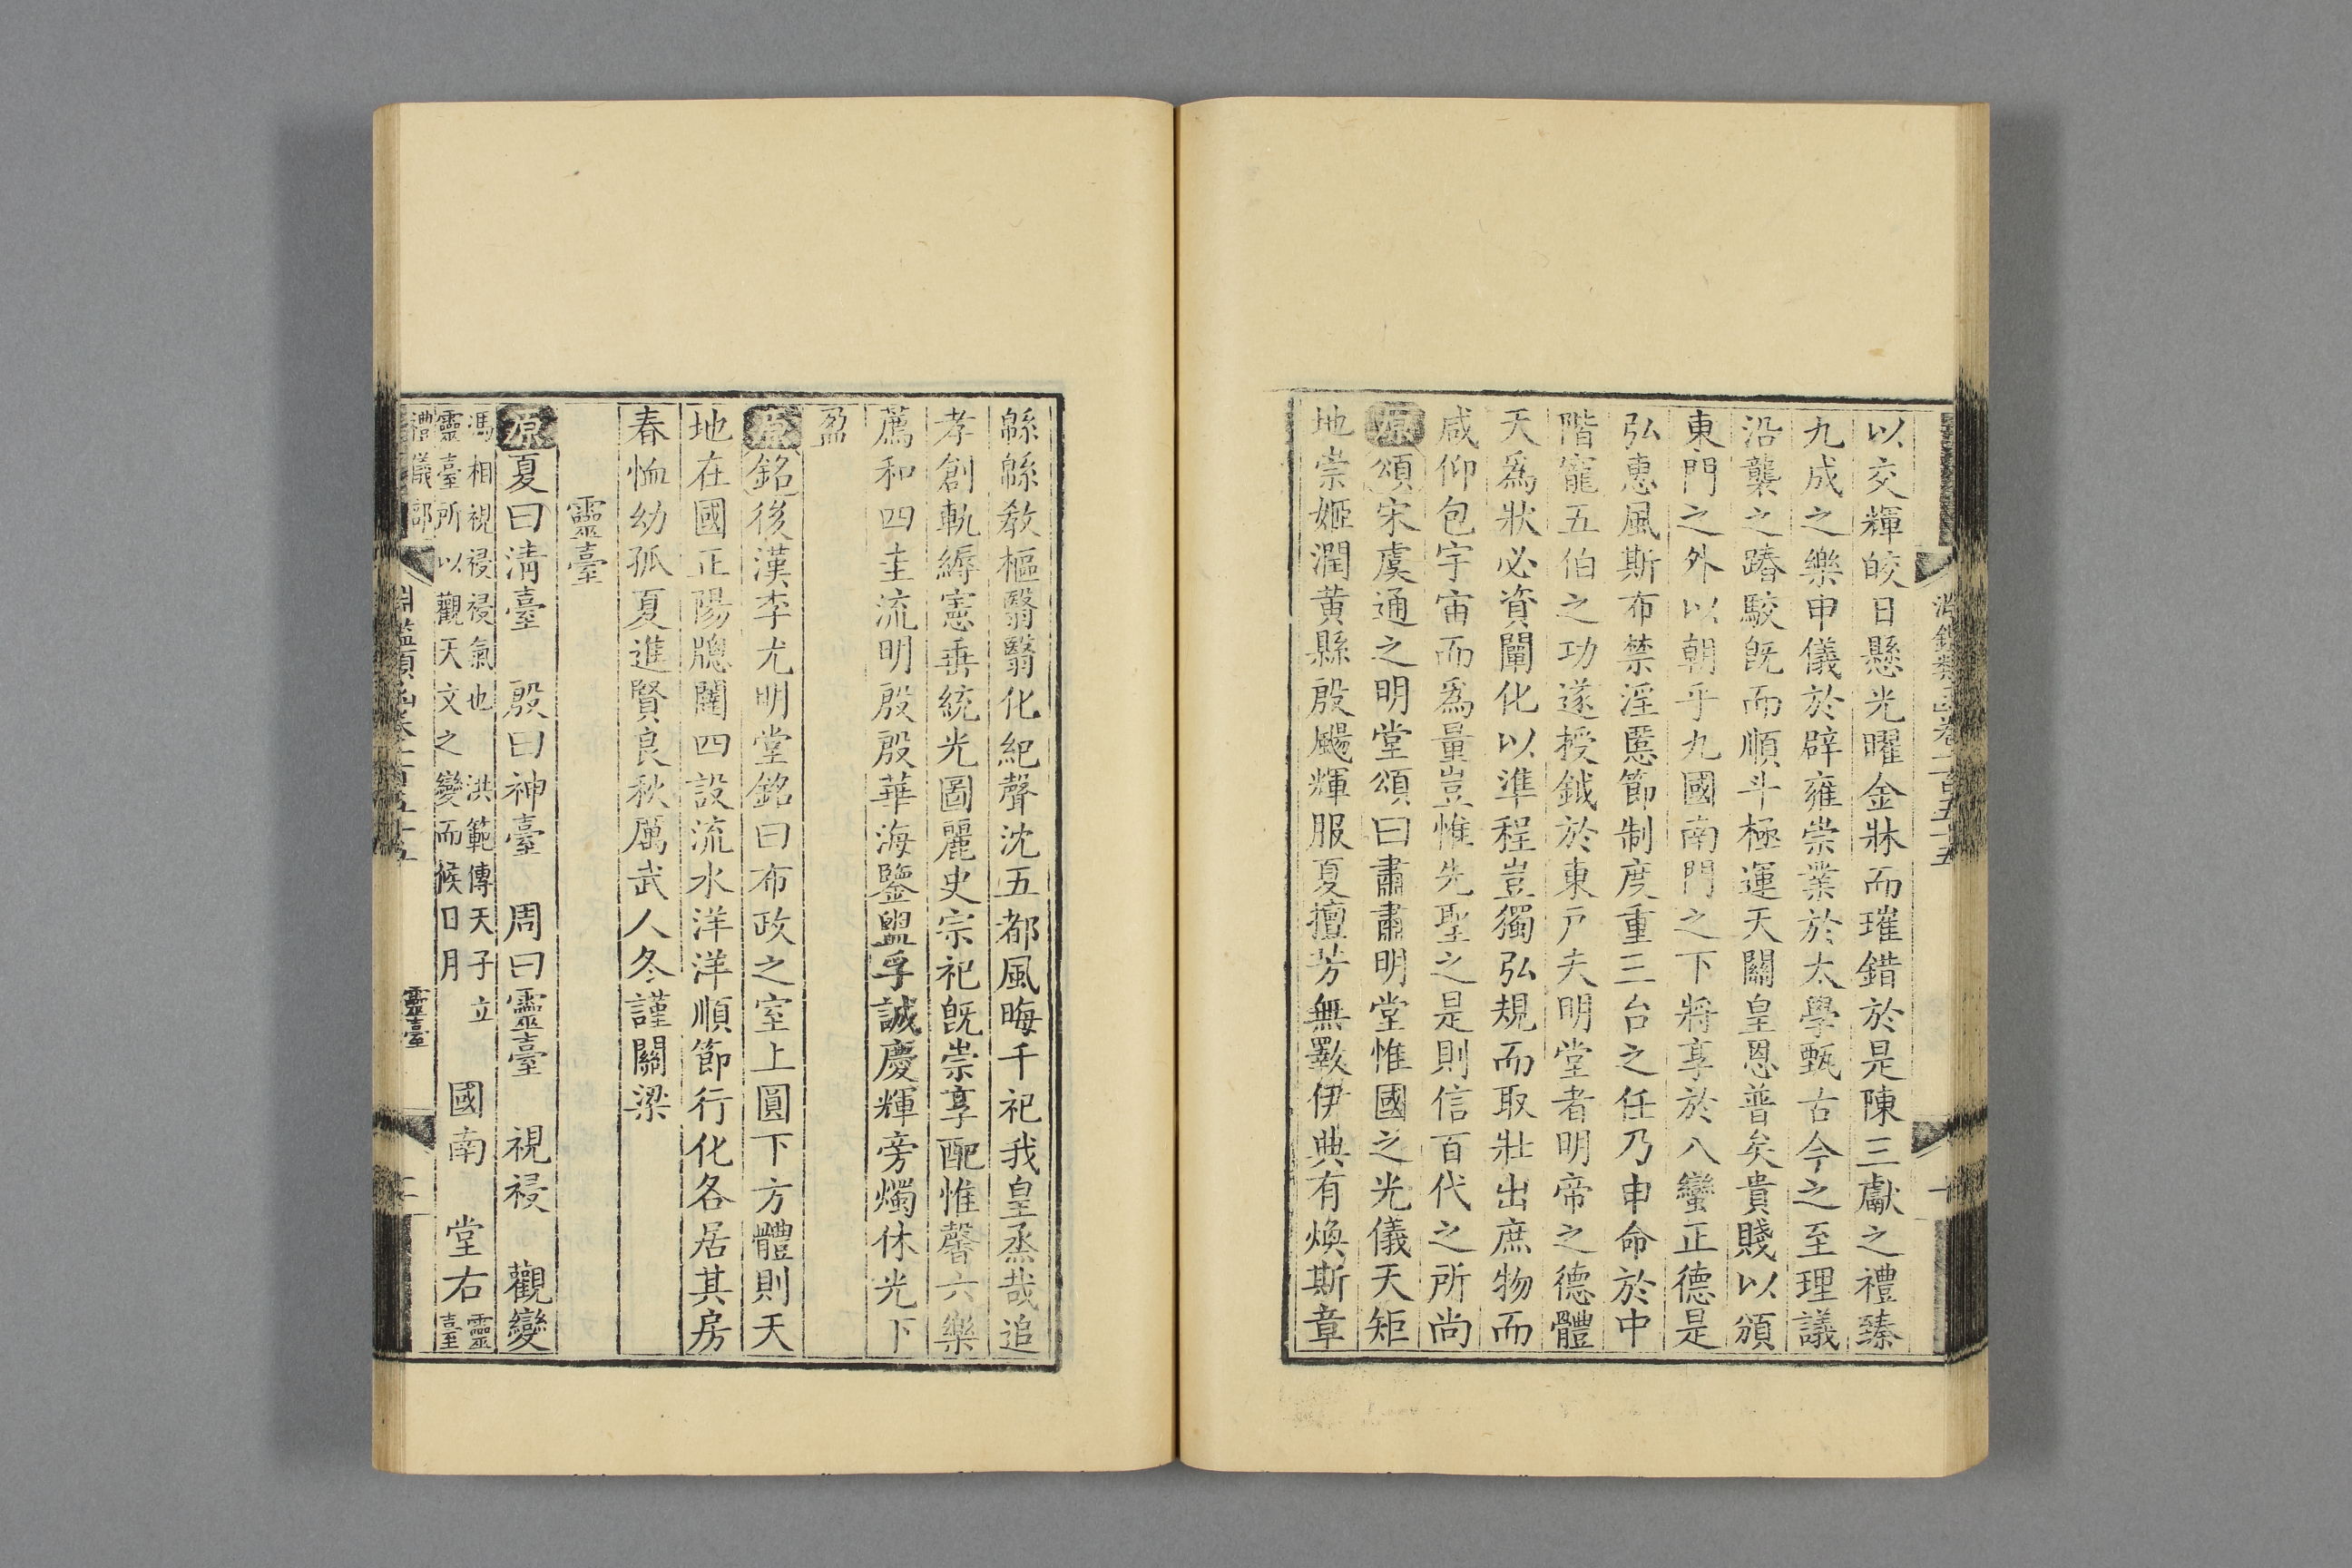 以交輝皎日懸光曜金牀而璀錯於是陳三獻之禮臻
九成之樂申儀於辟雍崇業於太學甄古今之至理議
沿襲之踳駮既而順斗極運天關皇恩普矣貴賤以頒
東門之外以朝乎九國南門之下將享於八蠻正德是
弘惠風斯布禁淫慝節制度重三台之任乃申命於中
階寵五伯之功遂授鉞於東戶夫明堂者明帝之德體
天爲狀必資闡化以準程豈獨弘規而取壯出庶物而
咸仰包宇宙而爲量豈惟先聖之是則信百代之所尚
原頌宋虞通之明堂頌曰肅肅明堂惟國之光儀天矩
地崇姬潤黄縣殷颺輝服夏擅芳無斁伊典有煥斯章
緜緜教樞翳翳化紀聲沈五都風晦千祀我皇烝哉追
孝創軌縟憲垂統光圖麗史宗祀既崇享配惟馨六樂
薦和四圭流明殷殷華海鑒盥孚誠慶輝旁燭休光下
盈
原銘後漢李尤明堂銘曰布政之室上圓下方體則天
地在國正陽牕闥四設流水洋洋順節行化各居其房
春恤幼孤夏進賢良秋厲武人冬謹關梁
靈臺
原夏曰淸臺 殷曰神臺 周曰靈臺 視祲 觀變
馮相視祲祲氣也 洪範傳天子立
靈臺所以觀天文之變而候日月 國南 堂右 靈
臺
禮儀部 淵鑑類函卷一百五十五 靈臺